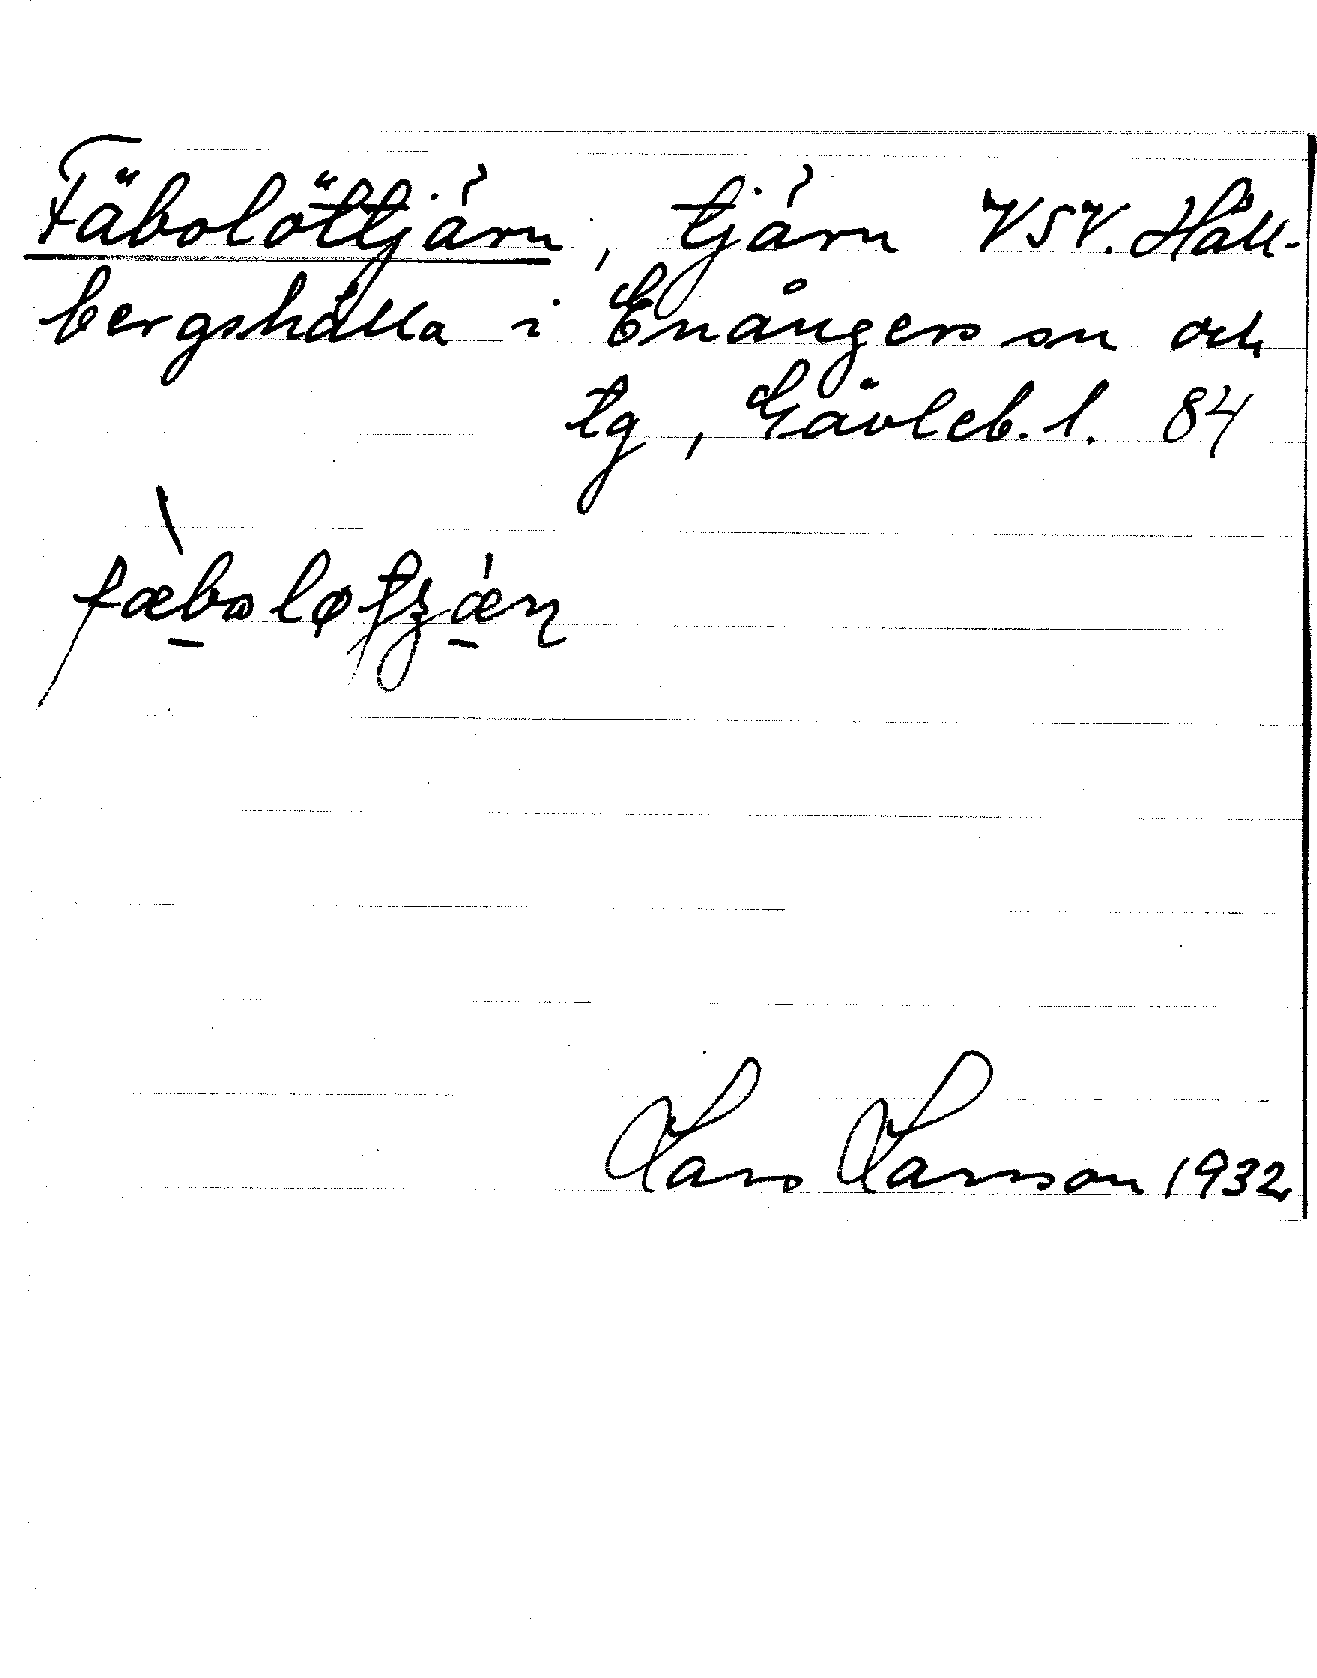 Fäbolöttjärn, tjärn VSV. Häll-
bergshälla i Enångers sn och
tg, Gävleb. l. 84
Lars Larsson 1932